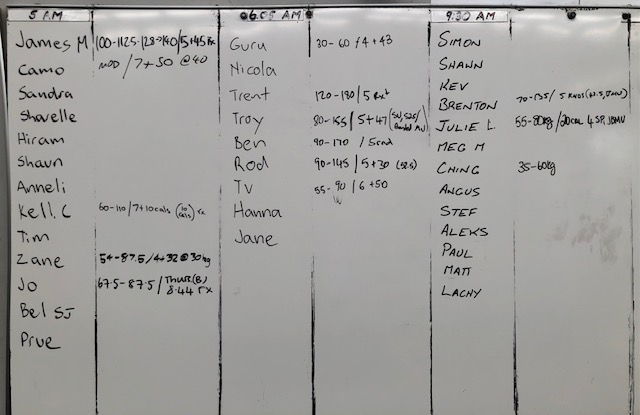 5 AM
James M 100-112.5-128-140/5+45 Rx
Camo MOD/7+50 @40
Sandra
Shavelle
Hiram
Shaun
Anneli
Kell. C 60-110/7+10cals (10 cals) rx
Tim
Zane 54-87.5/4+32@30kg
Jo 67.5-87.5/
8.44 rx
Bel SJ
Prue
6.05 AM
Guru 30-60/4+43
Nicola
Trent 120-180/5 Rx+
Troy 80-155/5+47
Ben 90-170/5rnd
Rod 90-145/5+30 (52.5)
Tv 55-90/6+50
Hanna
Jane
9:30 AM
SIMON
SHAWN
KEV
BRENTON 70-135/5 RNDS
JULIE L. 55-80kg/20cal
MEG M
CHING 35-60kg
ANGUS
STEF
ALEKS
PAUL
MATT
LACHY